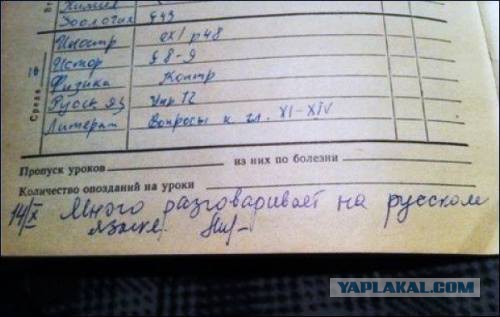 Химия
Зоология § 43
Иностр ex 1 p 48
Истор § 8-9
Физика Контр
Русск яз Упр 12
Литерат Вопросы к гл. XI-XIV
Среда 16
Пропуск уроков из них по болезни
Количество опозданий на уроки
14/X Много разговаривает на русском
языке.
YAPLAKAL.COM